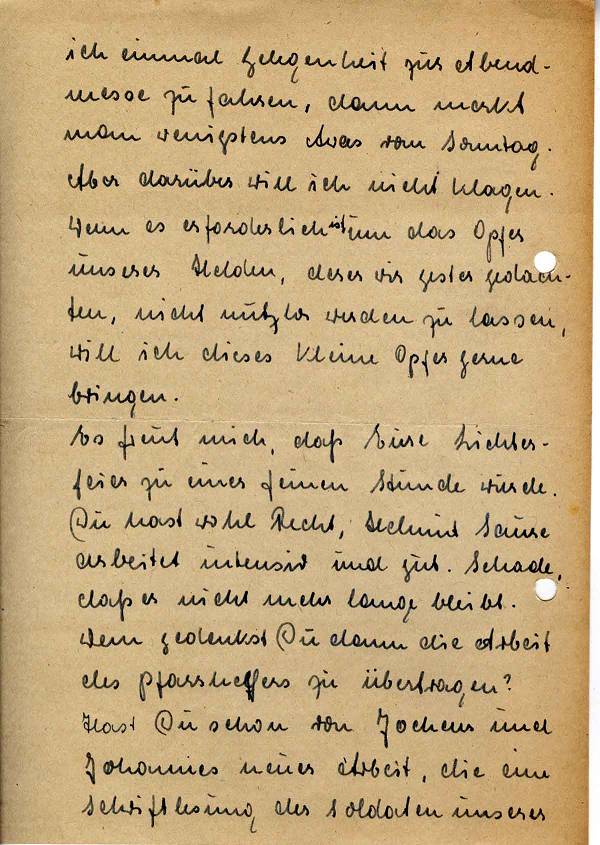 ich einmal Gelegenheit zur Abend-
messe zu fahren, dann merkt
man wenigstens etwas vom Sonntag.
Aber darüber will ich nicht klagen.
Wenn es erforderlich ist um das Opfer
unserer Helden, derer wir gester gedach-
ten, nicht nutzlos werden zu lassen,
will ich dieses kleine Opfer gerne
bringen.
Es freut mich, daß Eure Lichter-
feier zu einer feinen Stunde wurde.
Du hast wohl Recht, Helmut Saure
arbeitet intensiv und gut. Schade,
daß er nicht mehr lange bleibt.
Wem gedenkst Du dann die Arbeit
des Pfarrhelfers zu übertragen?
Hast Du schon von Jochens und
Johannes neuer Arbeit, die eine
Schriftlesung der Soldaten unserer